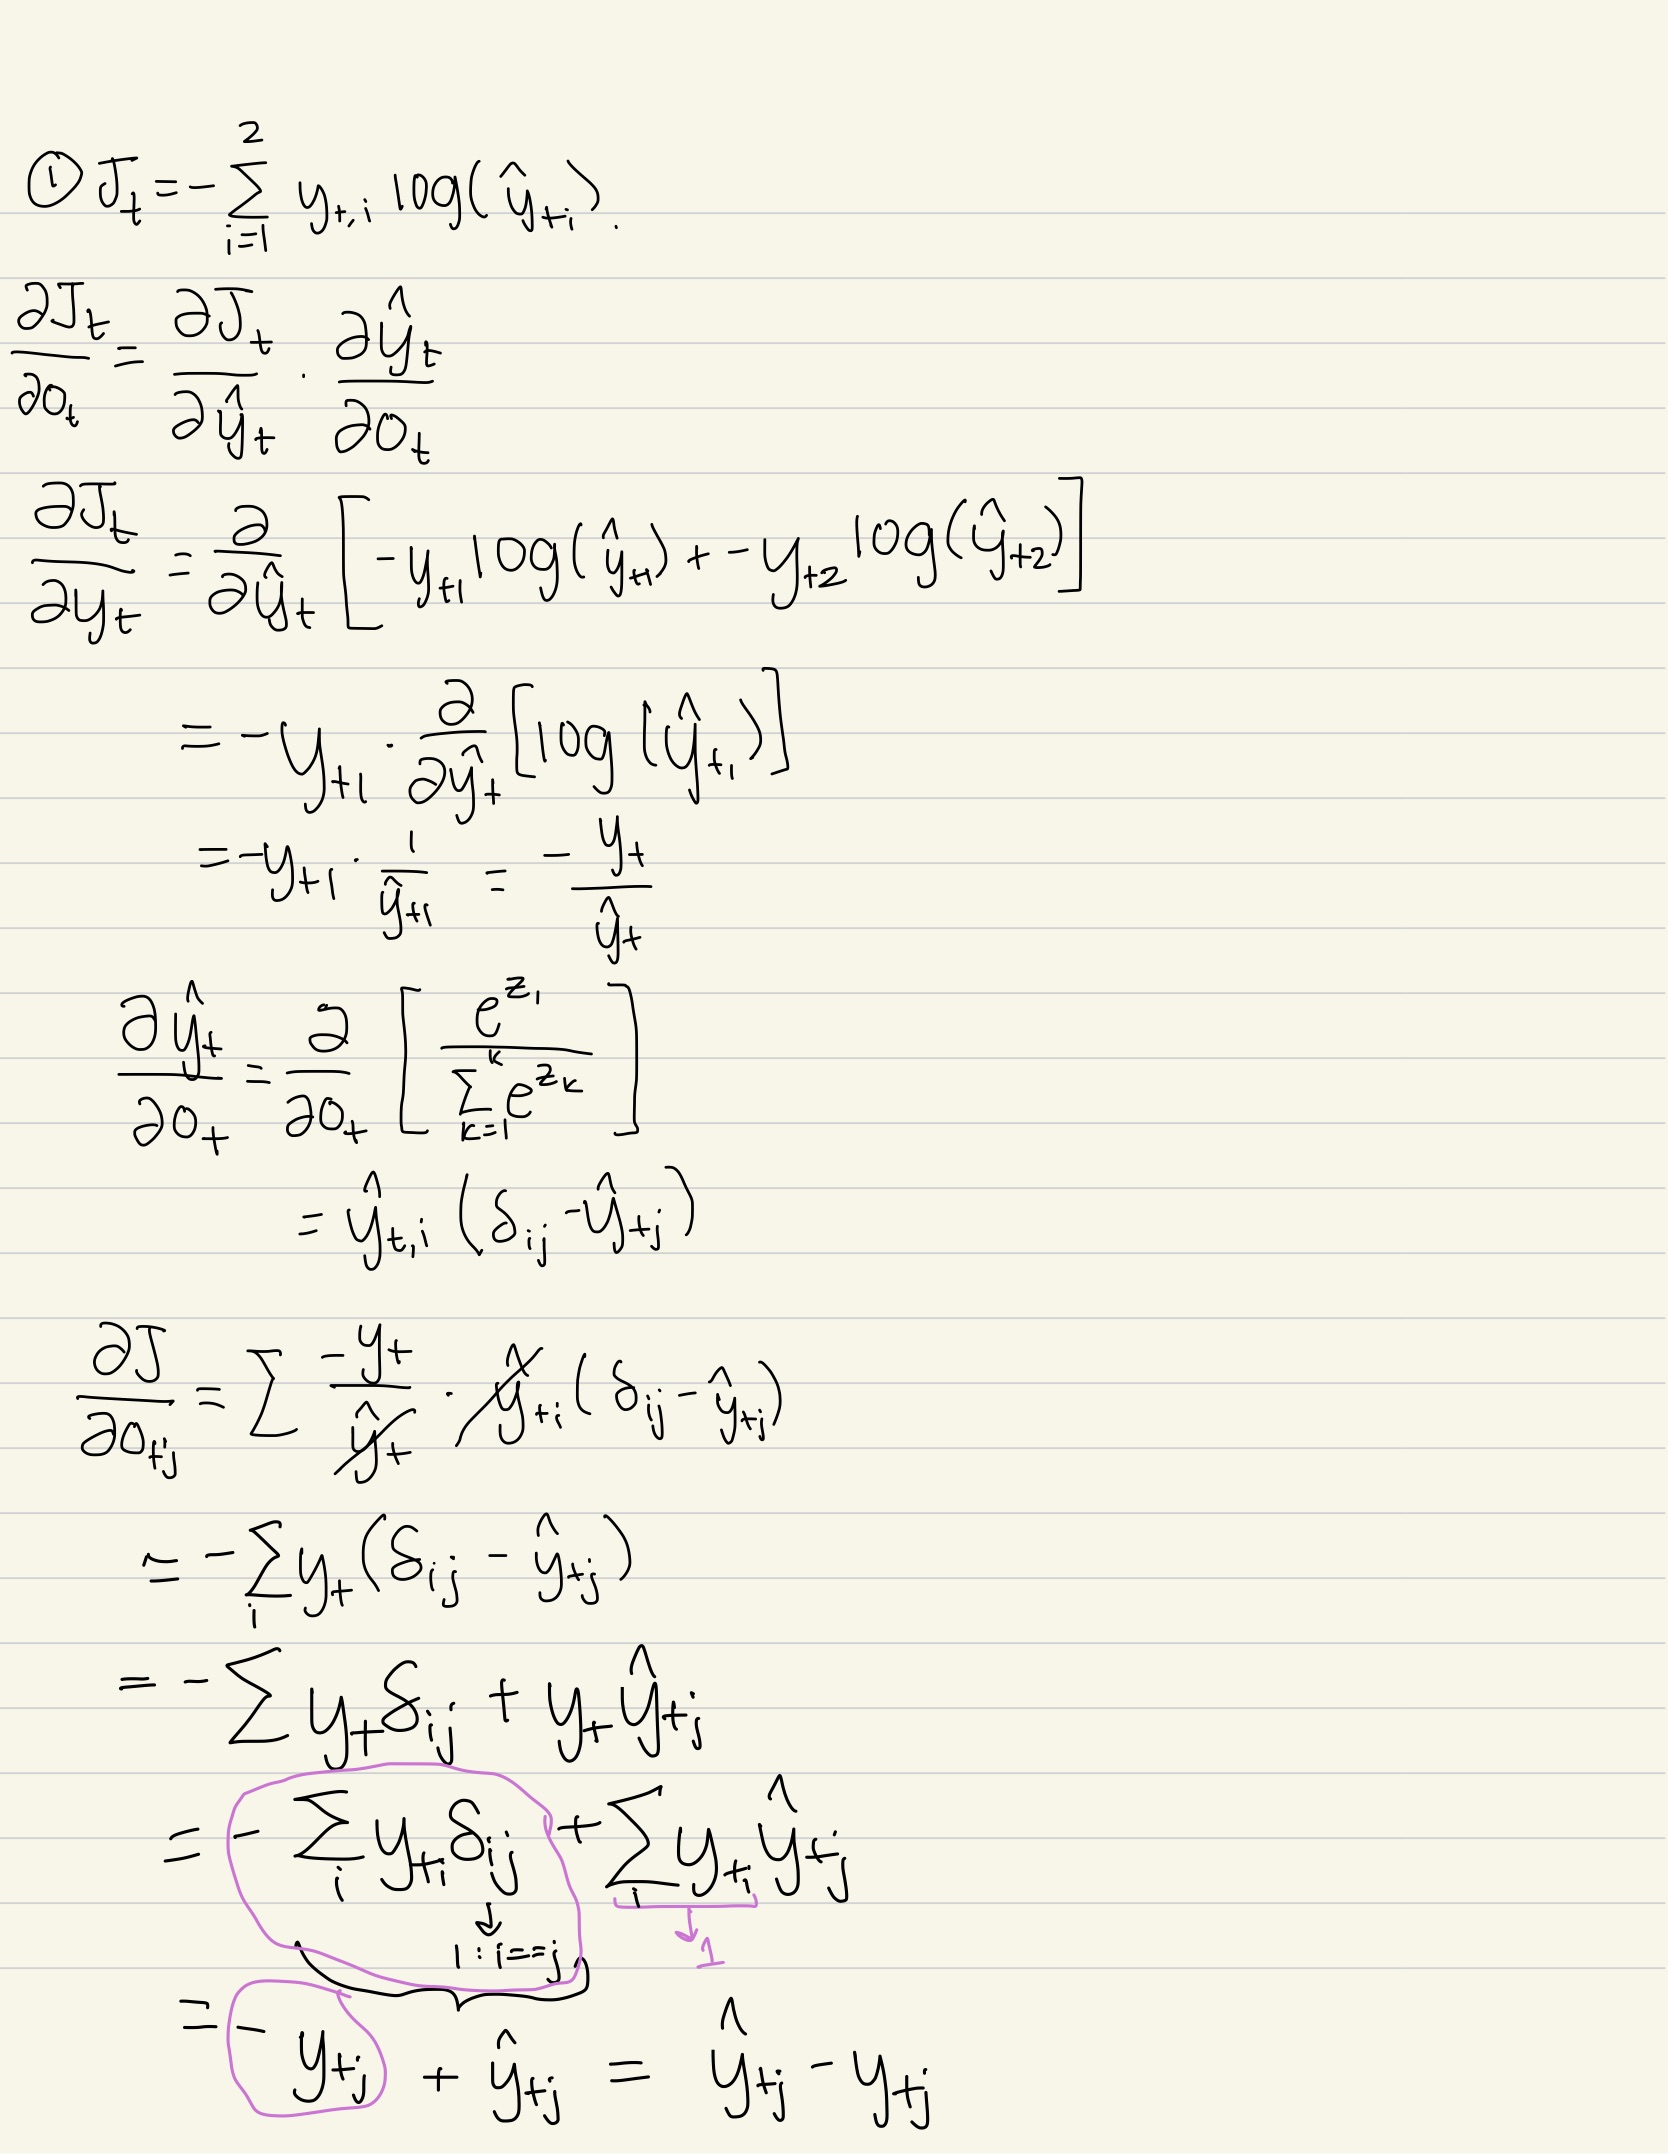 ① J_t = - ∑_{i=1}^{2} y_{t,i} log(ŷ_{ti}).
∂J_t/∂o_t = ∂J_t/∂ŷ_t · ∂ŷ_t/∂o_t
∂J_t/∂y_t = ∂/∂ŷ_t [ -y_{t1} log(ŷ_{t1}) + -y_{t2} log(ŷ_{t2}) ]
= -y_{t1} · ∂/∂ŷ_t [log(ŷ_{t1})]
= -y_{t1} · 1/ŷ_{t1} = - y_t/ŷ_t
∂ŷ_t/∂o_t = ∂/∂o_t [ e^{z_1} / ∑_{k=1}^{K} e^{z_k} ]
= ŷ_{t,i} (δ_{ij} - ŷ_{tj})
∂J/∂o_{tj} = ∑ -y_t/ŷ_t · ŷ_{ti} (δ_{ij} - ŷ_{tj})
= - ∑_i y_t (δ_{ij} - ŷ_{tj})
= - ∑ y_t δ_{ij} + y_t ŷ_{tj}
= - ∑_i y_{ti} δ_{ij} + ∑_i y_{ti} ŷ_{tj}
↓ 1 : i==j ↓ 1
= - y_{tj} + ŷ_{tj} = ŷ_{tj} - y_{tj}